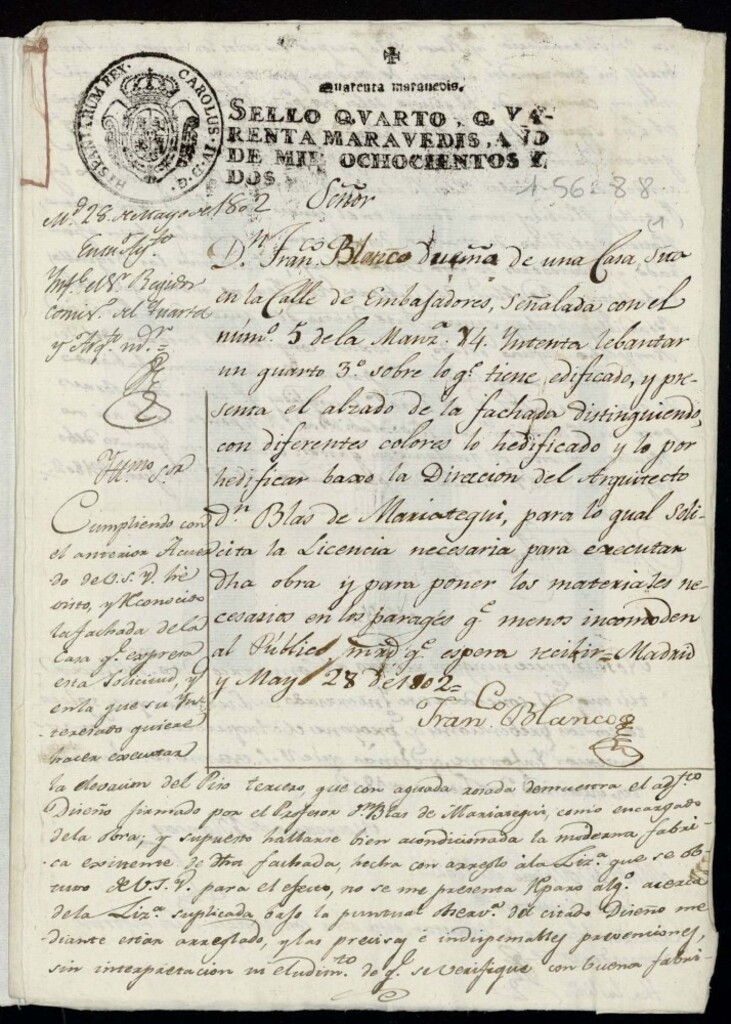 HISPANIARUM REX. CAROLUS. IV. D. G.
Quarenta maravedis.
SELLO QVARTO, QVA-
RENTA MARAVEDIS, AÑO
DE MIL OCHOCIENTOS Y
DOS
1-56-88
(1)
Señor
Dn. Franco. Blanco dueño de una Casa, sita
en la Calle de Embajadores, señalada con el
númo. 5 de la Manza. 14. Yntenta lebantar
un quarto 3º sobre lo qe. tiene edificado, y pre
senta el alzado de la fachada distinguiendo,
con diferentes colores lo hedificado y lo por
hedificar baxo la Direccion del Arquitecto
dn. Blas de Mariategui, para lo qual Soli-
cita la Licencia necesaria para executar
dha obra y para poner los materiales ne-
cesarios en los parages qe. menos incomoden
al Público mrd qe. espera recibir= Madrid
y Mayo 28 de 1802=
Franco. Blanco
Md. 28 de Mayo de 1802
Ynfe. el Sr. Regidor
comisº. del Quartel
y Arqto. mor.=
Yllmo Sor
Cumpliendo con
el anterior Acuer
do de V.S.Y. he
visto, y reconocido
la fachada de la
Casa qe. expresa
esta Solicitud, y
en la que su Yn-
teresado quiere
hacer executar
la elevacion del Piso tercero, que con aguada rosada demuestra el adjto
Diseño firmado por el Profesor Dn. Blas de Mariategui, como encargado
de la obra; y supuesto hallarse bien acondicionada la moderna fabri-
ca existente de dha fachada, hecha con arreglo a la Liza. que se ob-
tuvo de V.S.Y. para el efecto, no se me presenta reparo algo. acerca
de la Liza. suplicada bajo la puntual observa. del citado Diseño me
diante estar arreglado, y las precisas e indispensables prevenciones,
sin interpretacion ni eludimto. de qe. se verifique con buena fabri-